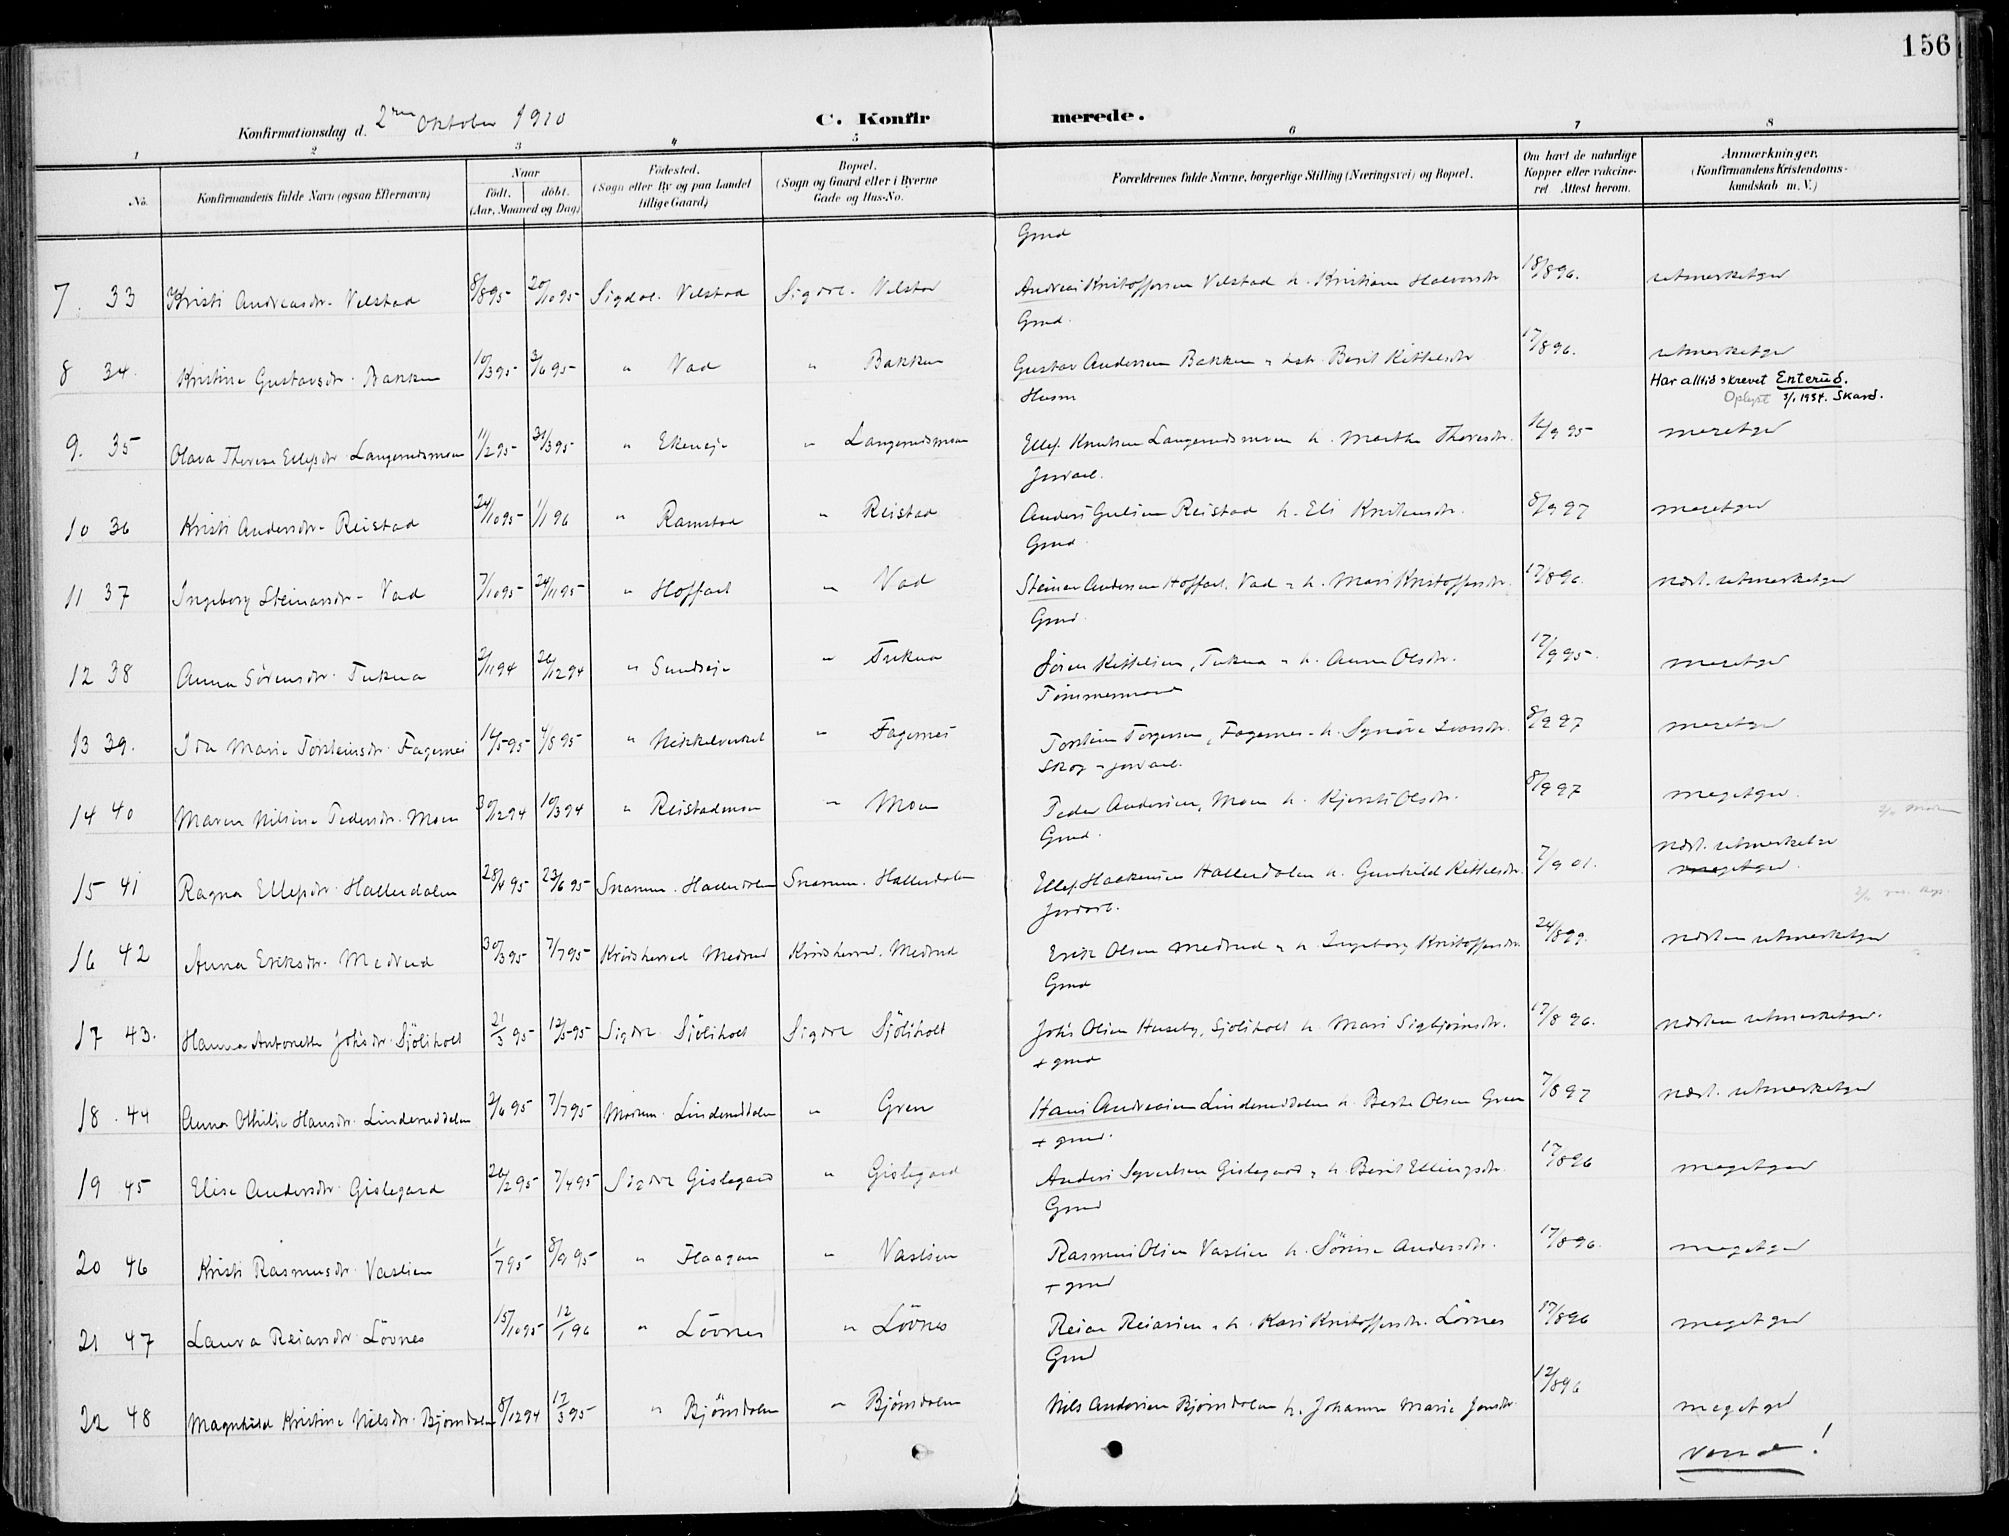 156
Konfirmationsdag d. 2den Oktober 1910
C. Konfirmerede.
1 2 3 4 5 6 7 8
No.
Konfirmandens fulde Navn (ogsaa Efternavn)
Naar
födt. döbt.
(Aar, Maaned og Dag)
Födested.
(Sogn eller By og paa Landet
tillige Gaard)
Bopæl.
(Sogn og Gaard eller i Byerne
Gade og Hus-No.
Forældrenes fulde Navne, borgerlige Stilling (Næringsvei) og Bopæl.
Om havt de naturlige
Kopper eller vakcine-
ret Attest herom.
Anmærkninger.
(Konfirmandens Kristendoms-
kundskab m. V.)
Grnd
7. 33 Kristi Andreasdr. Velstad 8/8 95 20/10 95 Sigdal. Velstad Sigdal. Velstad Andreas Kristoffersen Velstad h. Kristiane Halvorsdr. 18/8 96. utmerketgod
Grnd.
8 34. Kristine Gustavsdr. Bakken 10/3 95 3/6 95 " Vad " Bakken Gustav Andersen Bakken & hst. Berit Kittelsdr. 17/8 96. utmerketgod
Har alltid skrevet Enterud.
Oplyst 3/1 1934. Skard.
Husm
9. 35 Olava Therese Ellefsdr. Langerudsmoen 11/2 95 31/3 95 " Ekeneje " Langerudsmoen Ellef Knutsen Langerudsmoen h. Marthe Thoresdr. 16/9 95 megetgod
Jordarb.
10 36 Kristi Andersdr. Reistad 24/10 95 1/1 96 " Ramstad " Reistad Anders Gulsen Reistad h. Eli Kristensdr. 8/9 97 megetgod
Grnd.
11 37 Ingeborg Steinarsdr. Vad 7/10 95 24/11 95 " Hoffart " Vad Steinar Andersen Hoffart, Vad & h. Mari Kristoffersdr. 17/8 96. næst. utmerketgod
Grnd.
12 38 Anna Sörensdr. Tukua 2/11 94 26/12 94 " Sundseje " Tukua Sören Kittelsen, Tukua & h. Anne Olsdr. 17/9 95. megetgod
Tömmermand
13 39. Ida Marie Torsteinsdr. Fagernes 14/5 95 4/8 95 " Nikkelverket " Fagernes Torstein Torgersen, Fagernes & h. Synöve Iversdr. 8/9 97 megetgod
Skog & jordarb.
14 40 Maren Nilsine Pedersdr. Moen 30/12 94 10/3 94 " Reistadmoen " Moen Peder Andersen, Moen h. Kjersti Olsdr. 8/9 97 megetgod.
Grnd.
15 41 Ragna Ellefsdr. Hallerdalen 28/4 95 23/6 95 Snarum. Hallerdalen Snarum. Hallerdalen Ellef Haakensen Hallerdalen h. Gunhild Kittelsdr. 7/9 01. næst. utmerketgod
megetgod.
Jordarb.
16 42 Anna Eriksdr. Medrud 30/3 95 7/7 95 Krödsherred Medrud Krödsherred. Medrud Erik Olsen Medrud & h. Ingeborg Kristoffersdr. 24/8 99. næsten utmerketgod
Grnd
17 43. Hanna Antonette Johsdr. Sjöliholt 21/3 95 12/5 95 Sigdal Sjöliholt Sigdal Sjöliholt Johs Olsen Huseby, Sjöliholt h. Mari Sigbjörnsdr. 17/8 96. næsten utmerketgod.
+ grnd
18. 44 Anna Othilie Hansdr. Linderuddalen 2/6 95 7/7 95 Modum. Linderuddalen " Gren Hans Andreasen Linderuddalen h. Berte Olsen Gren 7/8 97 næst. utmerketgod
+ grnd.
19 45 Elise Andersdr. Gislegaard 26/2 95 7/4 95 Sigdal Gislegaard " Gislegaard Anders Syvertsen Gislegaard & h. Berit Ellingsdr. 17/8 96 megetgod
Grnd
20 46 Kristi Rasmusdr. Vaslien 1/7 95 8/9 95 " Haagan " Vaslien Rasmus Olsen Vaslien h. Sörine Andersdr. 17/8 96. megetgod
+ grnd
21 47 Laura Reiarsdr. Lövnes 15/10 95 12/1 96 " Lövnes " Lövnes Reiar Reiarsen & h. Kari Kristoffersdr. Lövnes 17/8 96 megetgod
Grnd
22 48 Magnhild Kristine Nilsdr. Björndalen 8/12 94 17/3 95 " Björndalen " Björndalen Nils Andersen Björndalen h. Johanne Marie Jonsdr. 12/8 96 megetgod
vend!